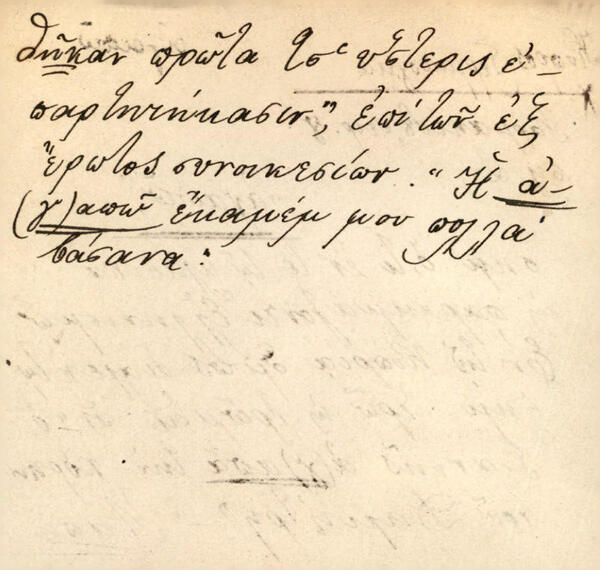 θῆκαν πρῶτα τσ' ὕστερις ἐ-
παρτηνήκασιν", ἐπὶ τῶν ἐξ
ἔρωτος συνοικεσίων. "Ἡ ἀ-
(γ)απῶ ἔκαμέμ μου πολλὰ
βάσανα."